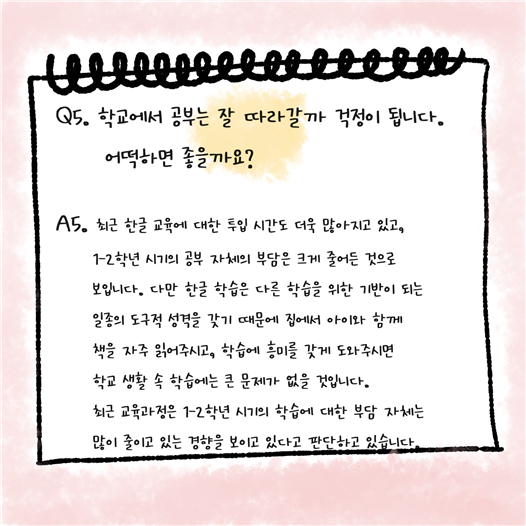 Q5. 학교에서 공부는 잘 따라갈까 걱정이 됩니다.
어떡하면 좋을까요?
A5. 최근 한글 교육에 대한 투입 시간도 더욱 많아지고 있고,
1-2학년 시기의 공부 자체의 부담은 크게 줄어든 것으로
보입니다. 다만 한글 학습은 다른 학습을 위한 기반이 되는
일종의 도구적 성격을 갖기 때문에 집에서 아이와 함께
책을 자주 읽어주시고, 학습에 흥미를 갖게 도와주시면
학교 생활 속 학습에는 큰 문제가 없을 것입니다.
최근 교육과정은 1-2학년 시기의 학습에 대한 부담 자체는
많이 줄이고 있는 경향을 보이고 있다고 판단하고 있습니다.